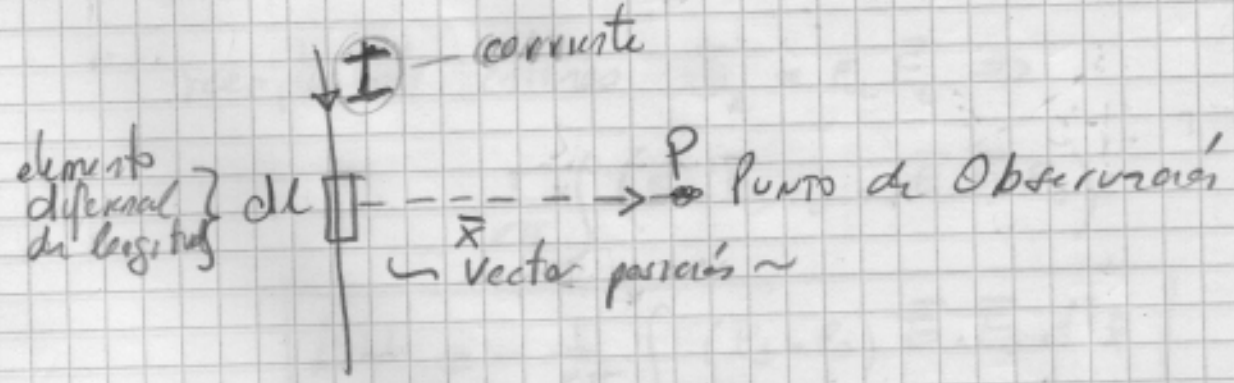 I — corriente
elemento
diferencial } dl
de longitud
P Punto de Observación
x̄
vector posición